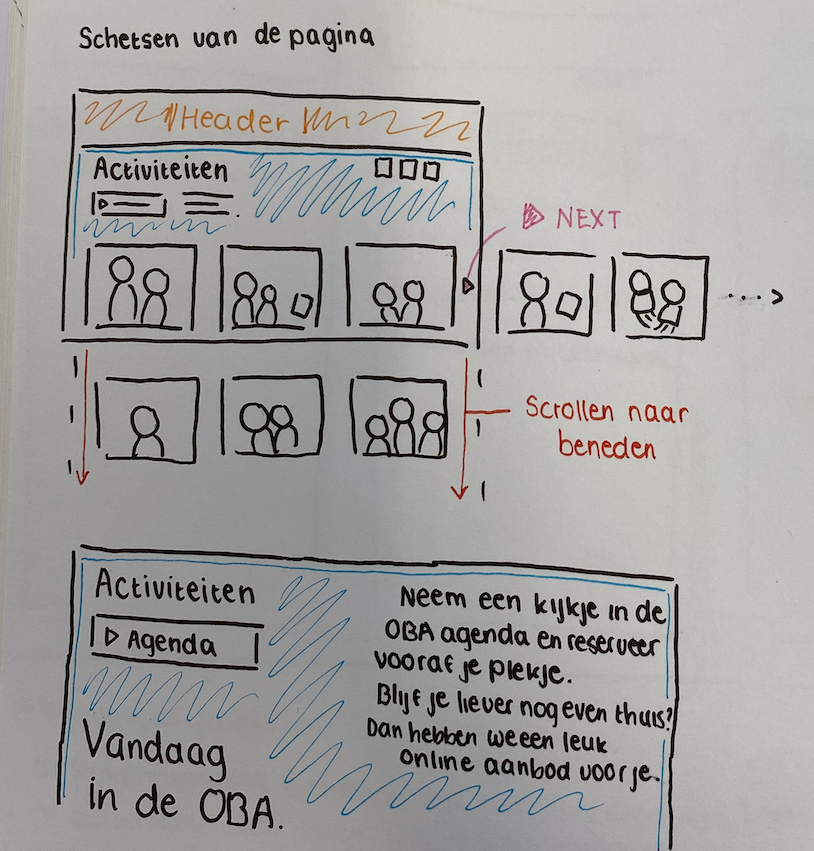 Schetsen van de pagina
Header
Activiteiten
NEXT
Scrollen naar
beneden
Activiteiten
Agenda
Vandaag
in de OBA.
Neem een kijkje in de
OBA agenda en reserveer
vooraf je plekje.
Blijf je liever nog even thuis?
Dan hebben we een leuk
online aanbod voor je.